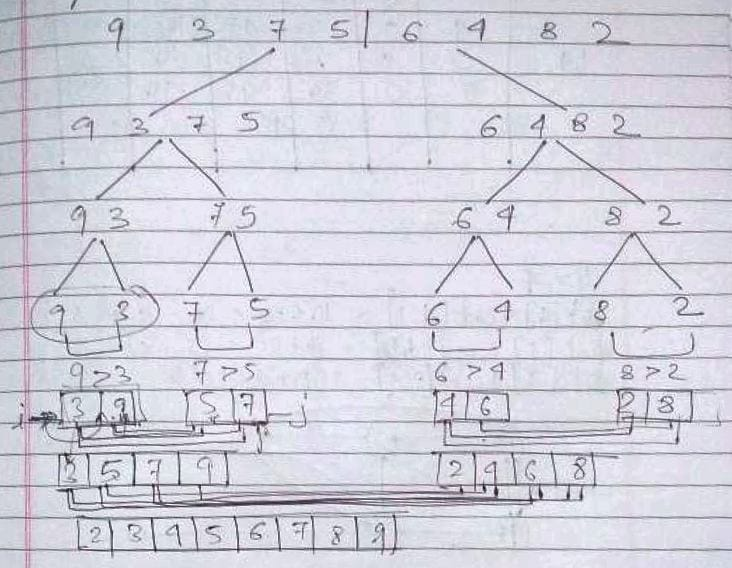 9 3 7 5 | 6 4 8 2
9 3 7 5 6 4 8 2
9 3 7 5 6 4 8 2
9 3 7 5 6 4 8 2
9>3 7>5 6>4 8>2
i 3 9 5 7 j 4 6 2 8
3 5 7 9 2 4 6 8
2 3 4 5 6 7 8 9